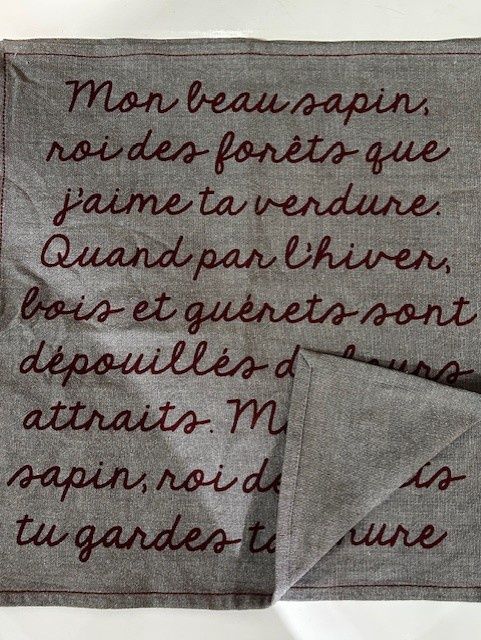 Mon beau sapin,
roi des forêts que
j'aime ta verdure.
Quand par l'hiver,
bois et guérets sont
dépouillés
attraits.
sapin, roi
tu gardes